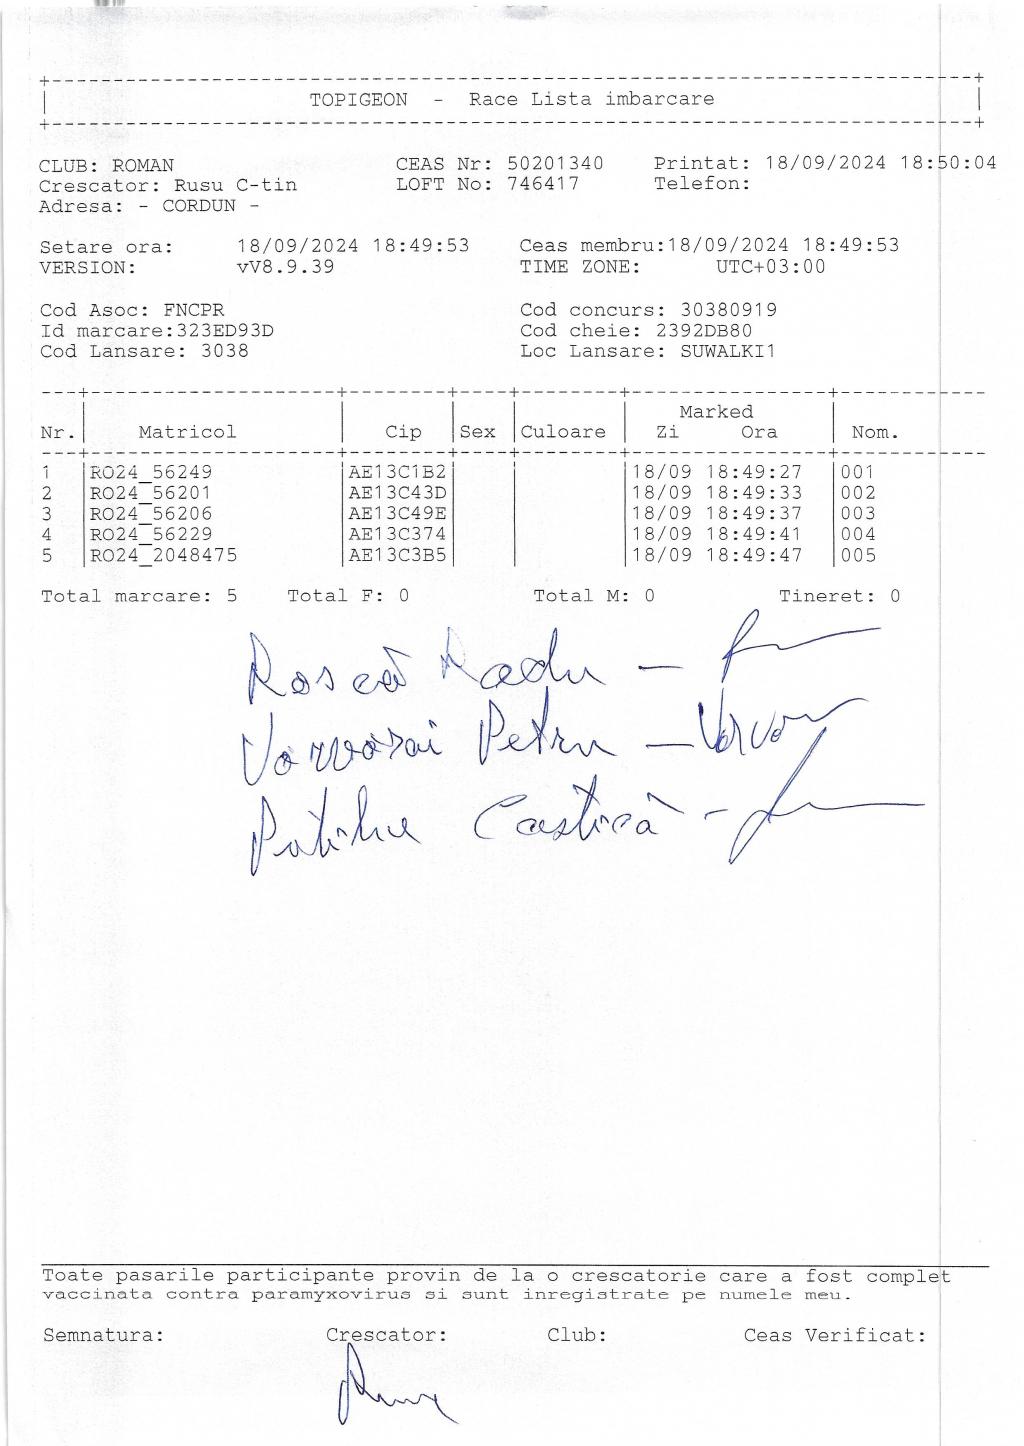 TOPIGEON - Race Lista imbarcare
CLUB: ROMAN CEAS Nr: 50201340 Printat: 18/09/2024 18:50:04
Crescator: Rusu C-tin LOFT No: 746417 Telefon:
Adresa: - CORDUN -
Setare ora: 18/09/2024 18:49:53 Ceas membru:18/09/2024 18:49:53
VERSION: vV8.9.39 TIME ZONE: UTC+03:00
Cod Asoc: FNCPR Cod concurs: 30380919
Id marcare:323ED93D Cod cheie: 2392DB80
Cod Lansare: 3038 Loc Lansare: SUWALKI1
Marked
Nr. Matricol Cip Sex Culoare Zi Ora Nom.
1 RO24_56249 AE13C1B2 18/09 18:49:27 001
2 RO24_56201 AE13C43D 18/09 18:49:33 002
3 RO24_56206 AE13C49E 18/09 18:49:37 003
4 RO24_56229 AE13C374 18/09 18:49:41 004
5 RO24_2048475 AE13C3B5 18/09 18:49:47 005
Total marcare: 5 Total F: 0 Total M: 0 Tineret: 0
Roscă Radu -
Petru -
Costică -
Toate pasarile participante provin de la o crescatorie care a fost complet
vaccinata contra paramyxovirus si sunt inregistrate pe numele meu.
Semnatura: Crescator: Club: Ceas Verificat: